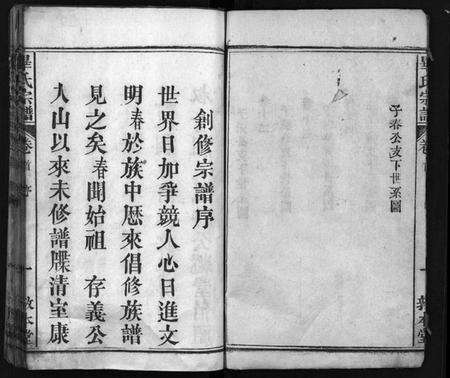 畢氏宗譜
卷首
一
敦本堂
子春公支下世系圖
創修宗譜序
世界日加爭競人心日進文
明春於族中歷來倡修族譜
見之矣春聞始祖 存義公
入山以來未修譜牒清室康
畢氏宗譜
卷首 序
一
敦本堂